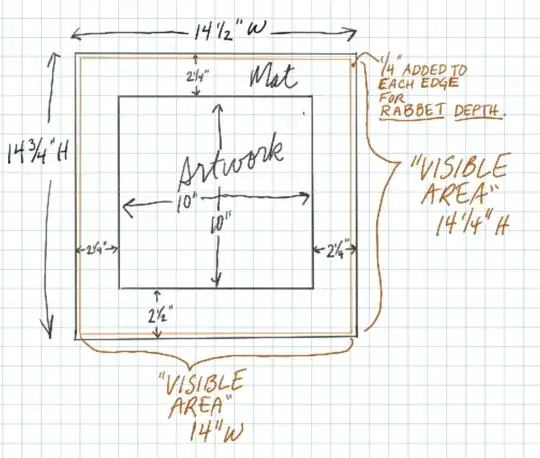 14 1/2" W
2 1/4"
Mat
1/4"
ADDED TO
EACH EDGE
FOR
RABBET DEPTH.
14 3/4" H
Artwork
10"
10"
"VISIBLE
AREA"
14 1/4" H
2 1/4"
2 1/4"
2 1/2"
"VISIBLE
AREA"
14" W